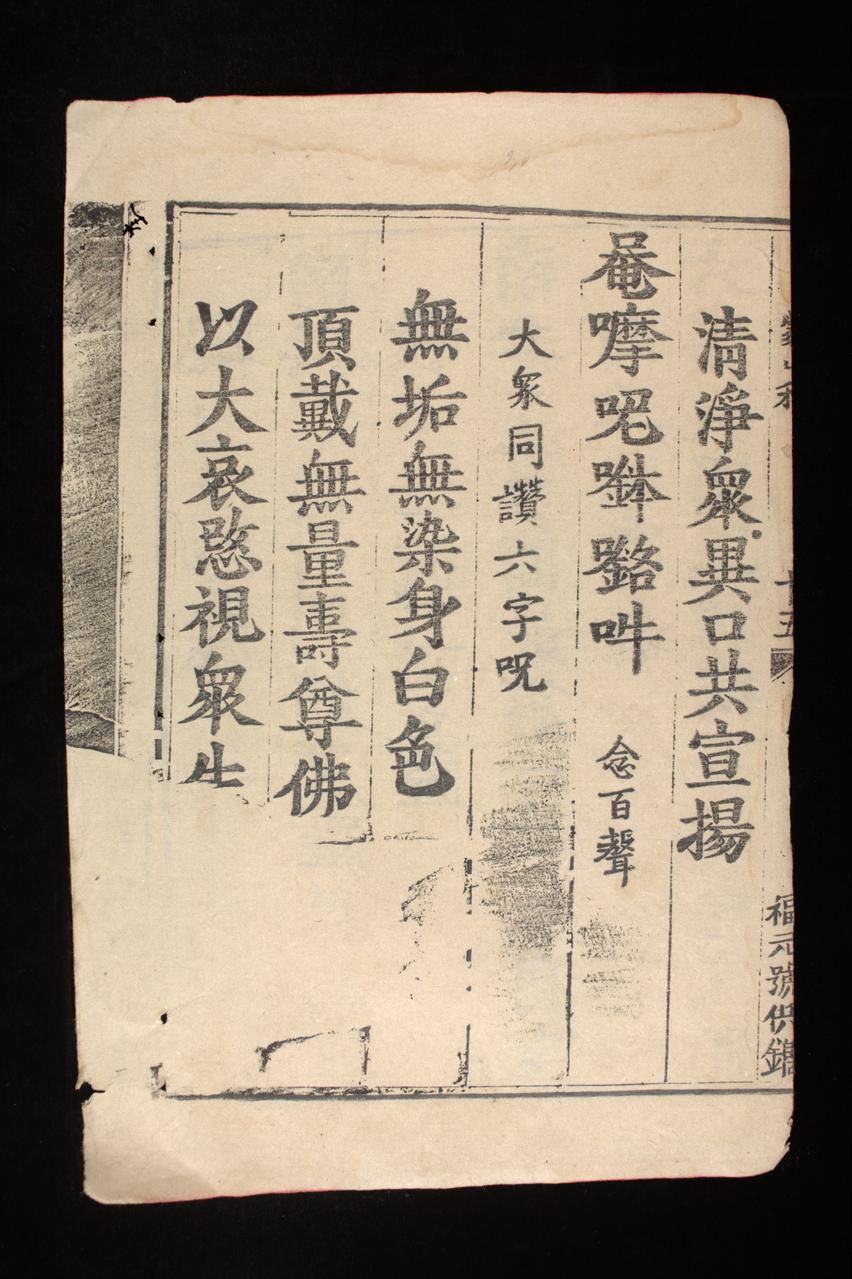 五
福元號供鐫
清淨衆異口共宣揚
唵嚤呢吽 念百聲
大衆同讚六字呪
無垢無染身白色
頂戴無量壽尊佛
以大哀愍視衆生